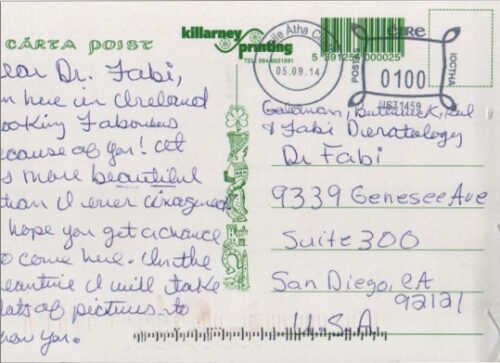 CÁRTA POIST
killarney
printing
ile Átha C
05.09.14
000025
éire
POSTAS
0100
IOCTHA
ear Dr. Fabi,
m here in Ireland
ooking Fabulous
ecause of you! It
s more beautiful
han I ever imagined
hope you get a chance
o come here. In the
eantime I will take
lots of pictures to
how you.
Goldman, Butterwick,
& Fabi Deratology
Dr Fabi
9339 Genesee Ave
Suite 300
San Diego, CA
92121
U.S.A